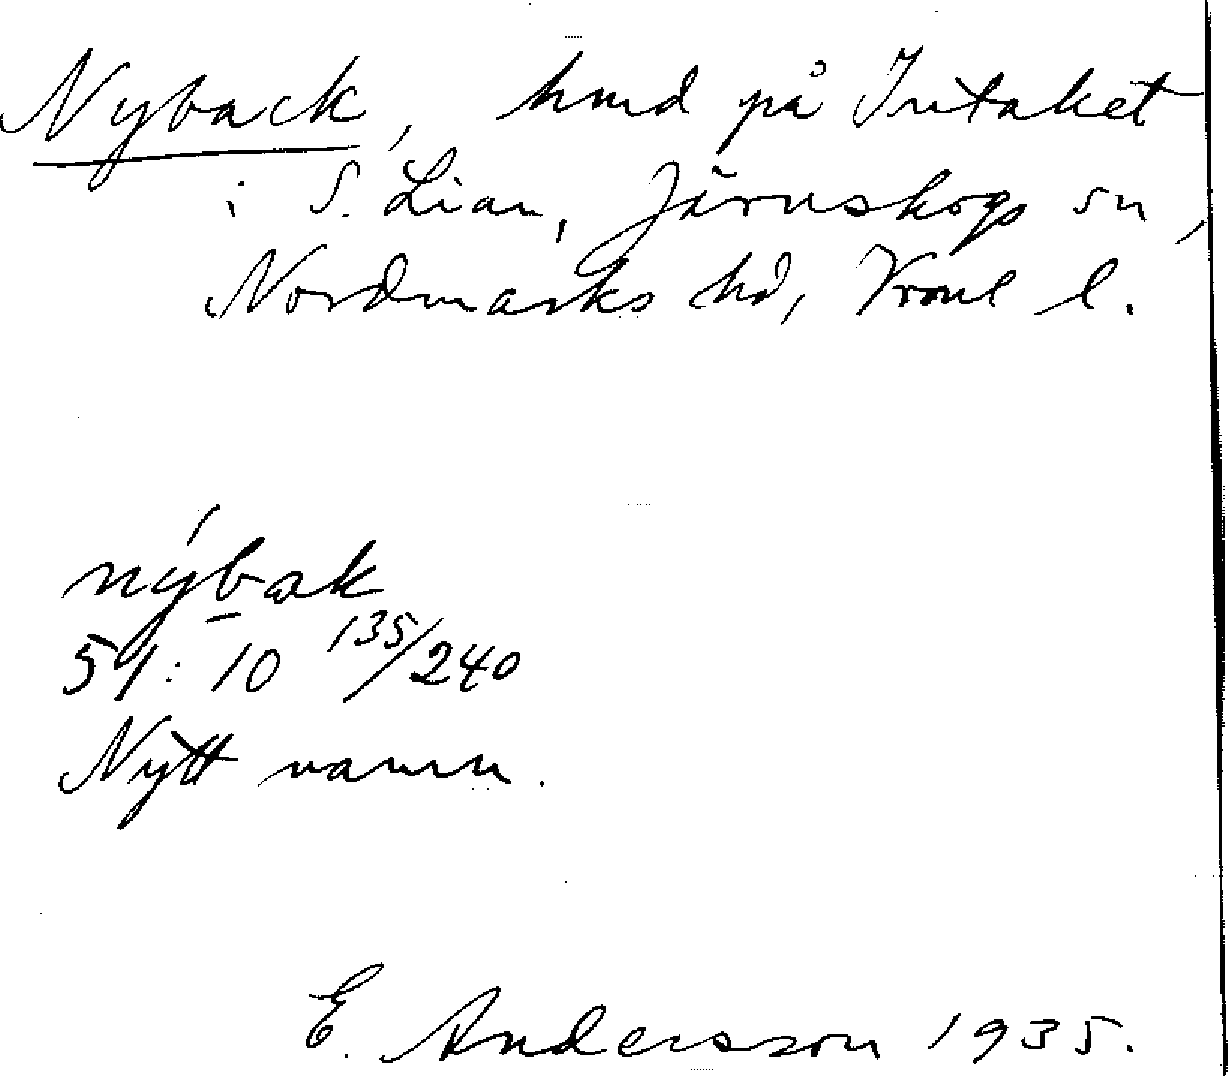 Nyback, hmd på Intaket
i S. Lian, Järnskogs sn,
Nordmarks hd, Värml l.
nýbak
51: 10 135/240
Nytt namn.
E. Andersson 1935.